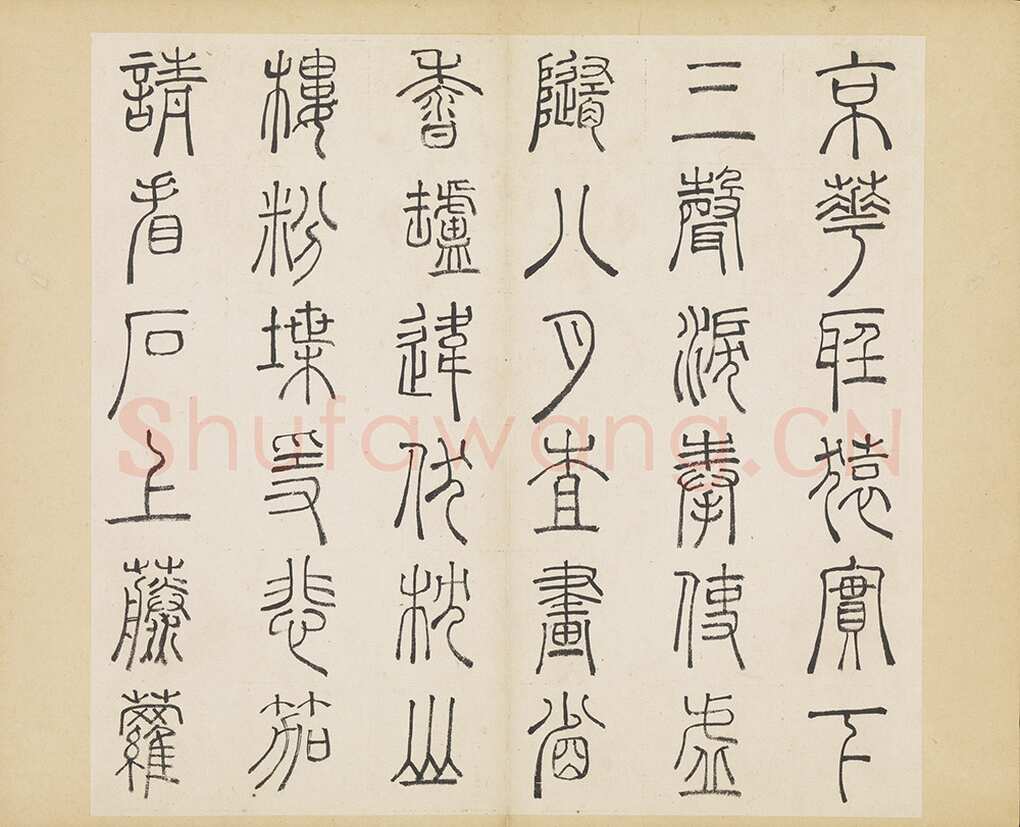 京華聽猿實下
三聲淚奉使虛
隨八月查畫省
香罏違伏枕山
樓粉堞隱悲笳
請看石上藤蘿
Shufawang.CN